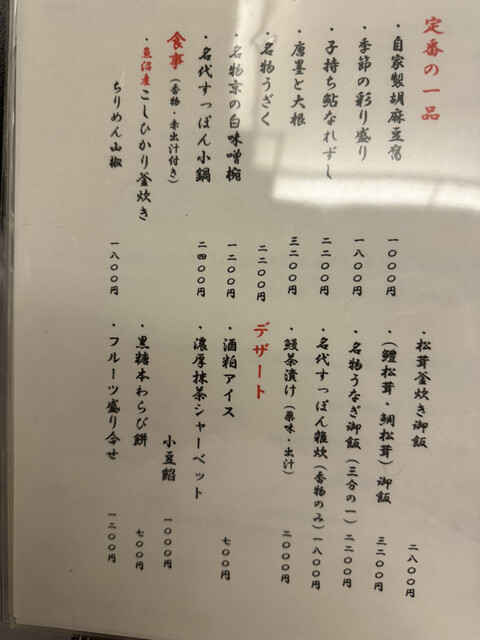 定番の一品
・自家製胡麻豆腐 一〇〇〇円
・季節の彩り盛り 一八〇〇円
・子持ち鮎なれずし 二二〇〇円
・唐墨と大根 三二〇〇円
・名物うざく 二二〇〇円
・名物京の白味噌椀 一二〇〇円
・名代すっぽん小鍋 二四〇〇円
食事（香物・赤出汁付き）
・魚沼産こしひかり釜炊き
ちりめん山椒 一八〇〇円
・松茸釜炊き御飯 二八〇〇円
・（鱧松茸・鯛松茸）御飯 三二〇〇円
・名物うなぎ御飯（三分の一） 二二〇〇円
・名代すっぽん雑炊（香物のみ） 一八〇〇円
・鰻茶漬け（薬味・出汁） 二〇〇〇円
デザート
・酒粕アイス 七〇〇円
・濃厚抹茶シャーベット
小豆餡 一〇〇〇円
・黒糖本わらび餅 七〇〇円
・フルーツ盛り合せ 一二〇〇円